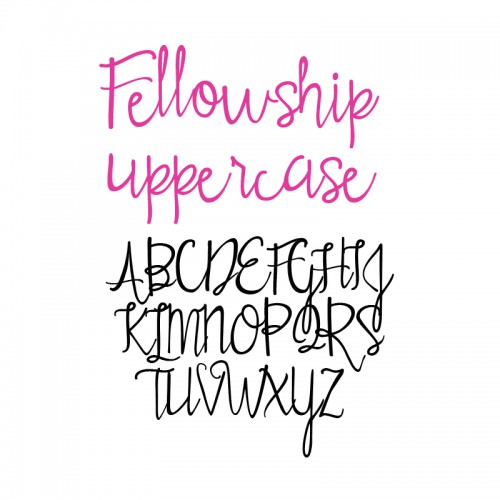 Fellowship
uppercase
ABCDEFGHIJ
KLMNOPQRS
TUVWXYZ